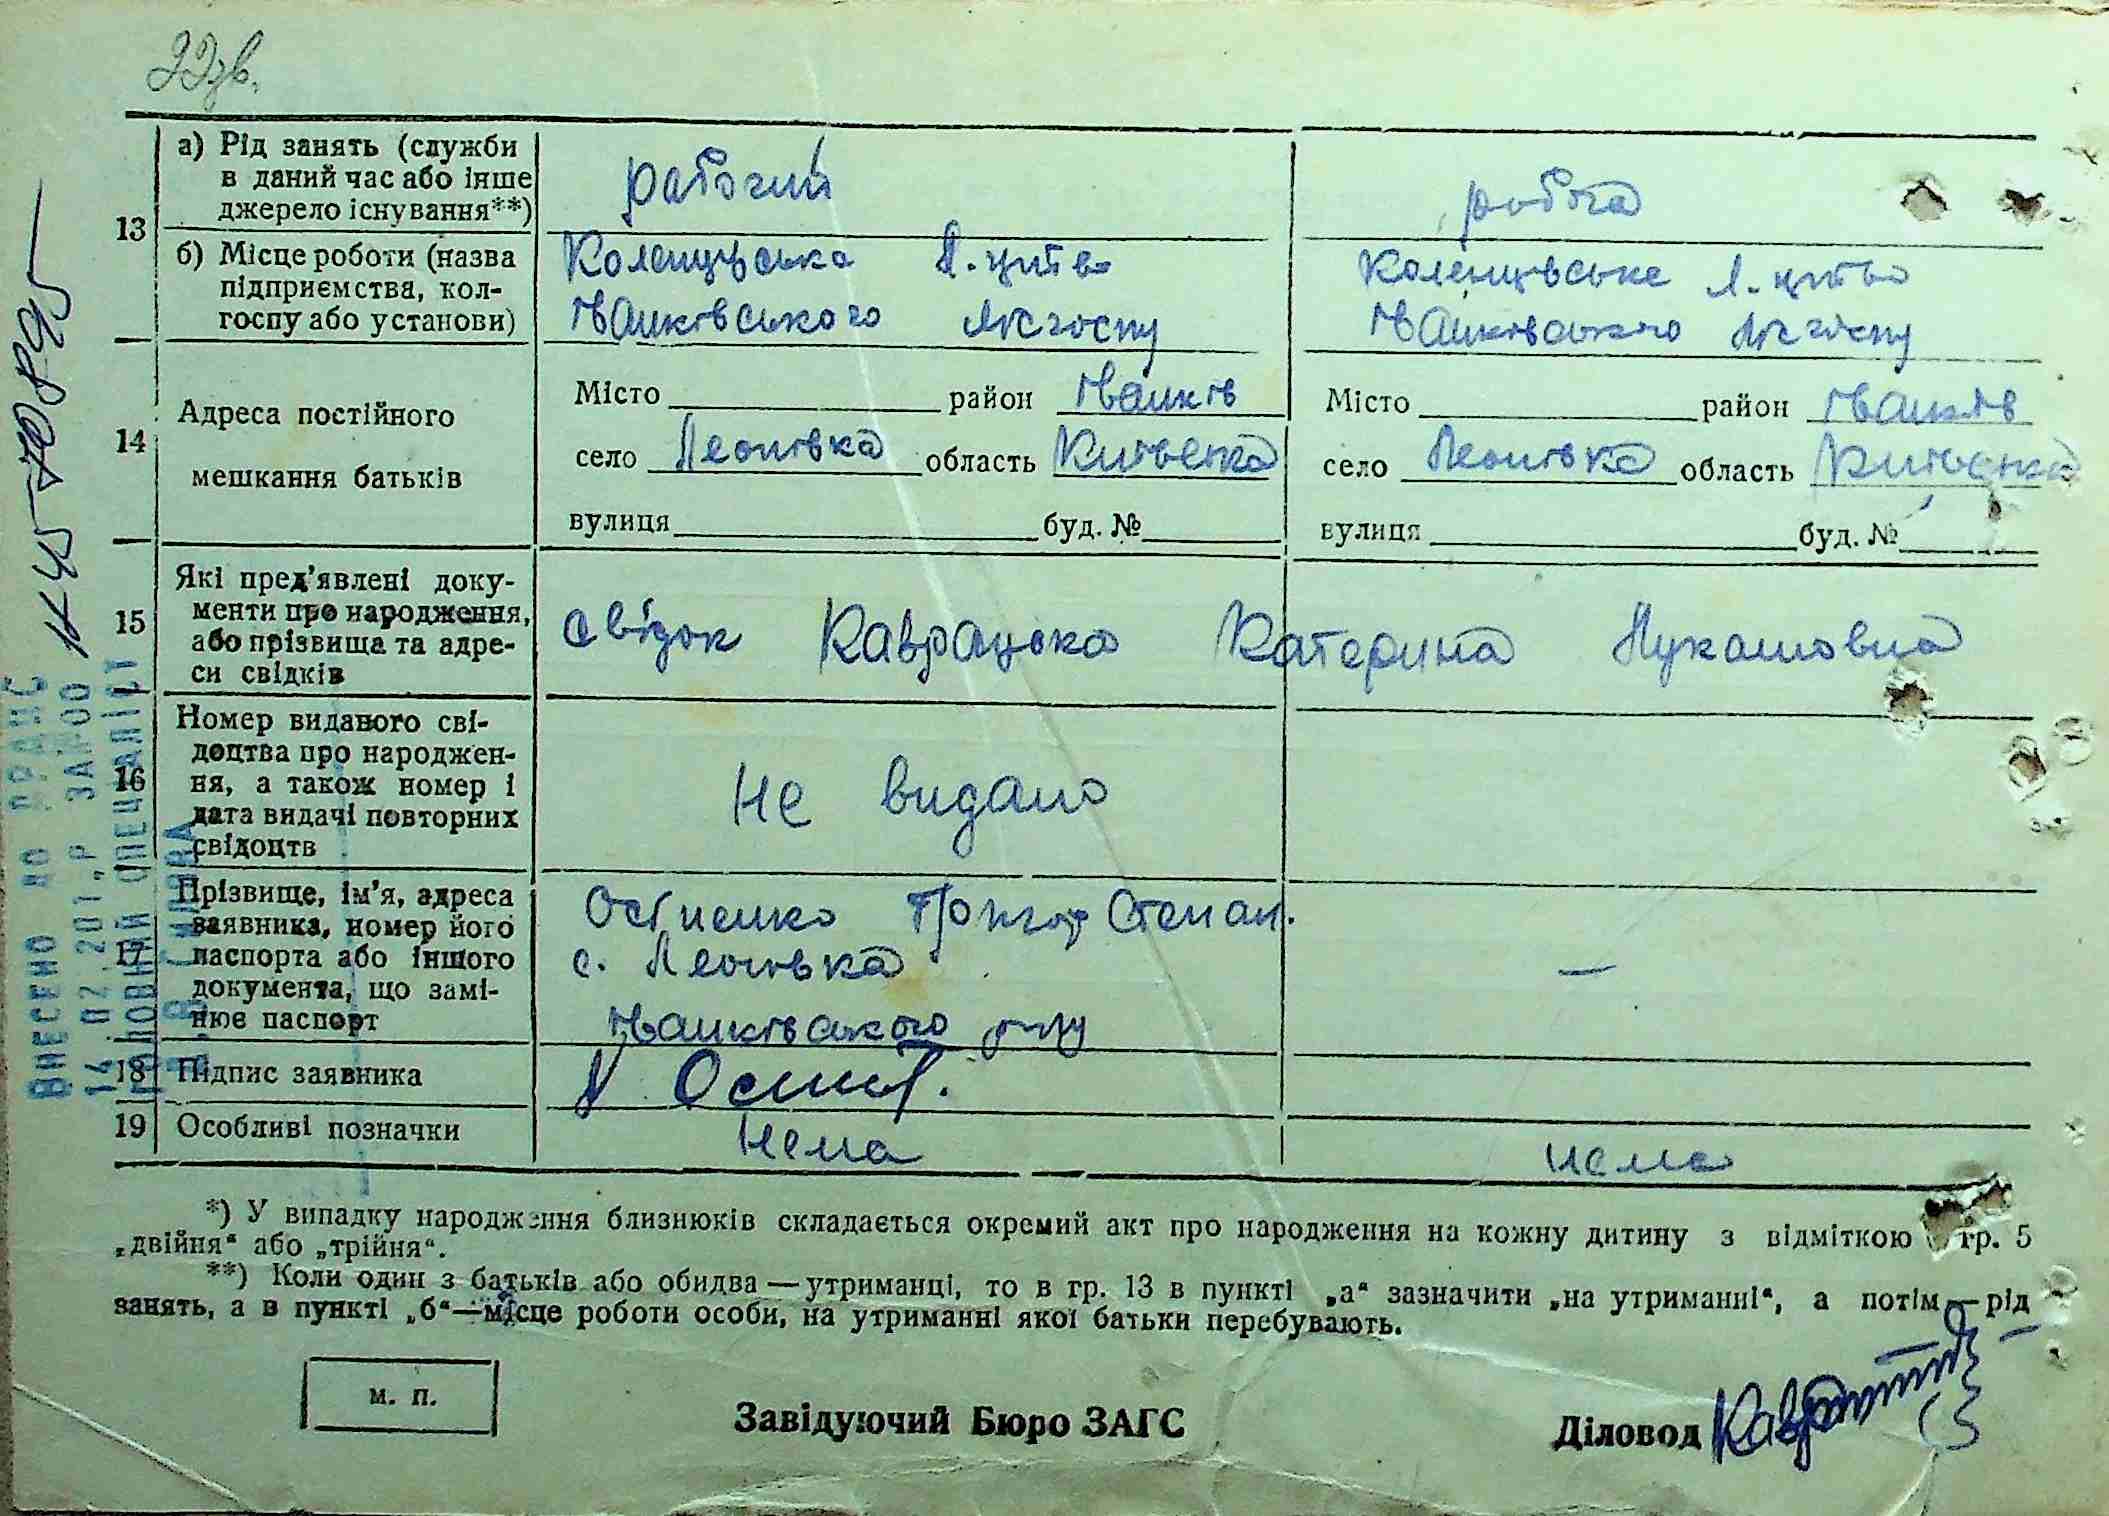 22зв.
13
а) Рід занять (служби
в даний час або інше
джерело існування**)
рабочий
робоча
б) Місце роботи (назва
підприємства, кол-
госпу або установи)
Коленцівська л.цтво
Іванківського лісгоспу
Коленцівське л.цтво
Іванківського лісгоспу
14
Адреса постійного
мешкання батьків
Місто район Іванків
село Леонівка область Київська
вулиця буд. №
Місто район Іванків
село Леонівка область Київська
вулиця буд. №
15
Які пред'явлені доку-
менти про народження,
або прізвища та адре-
си свідків
свідок Каврацька Катерина Лукашовна
16
Номер виданого сві-
доцтва про народжен-
ня, а також номер і
дата видачі повторних
свідоцтв
Не видано
17
Прізвище, ім'я, адреса
заявника, номер його
паспорта або іншого
документа, що замі-
нює паспорт
Степан.
с. Леонівка
Іванківського р-ну
—
18 Підпис заявника
19 Особливі позначки
Нема
нема
ВНЕСЕНО ДО ДРАЦС
ГОЛОВНИЙ СПЕЦІАЛІСТ
*) У випадку народження близнюків складається окремий акт про народження на кожну дитину з відміткою гр. 5
„двійня“ або „трійня“.
**) Коли один з батьків або обидва — утриманці, то в гр. 13 в пункті „а“ зазначити „на утриманні“, а потім — рід
занять, а в пункті „б“ — місце роботи особи, на утриманні якої батьки перебувають.
м. п.
Завідуючий Бюро ЗАГС
Діловод